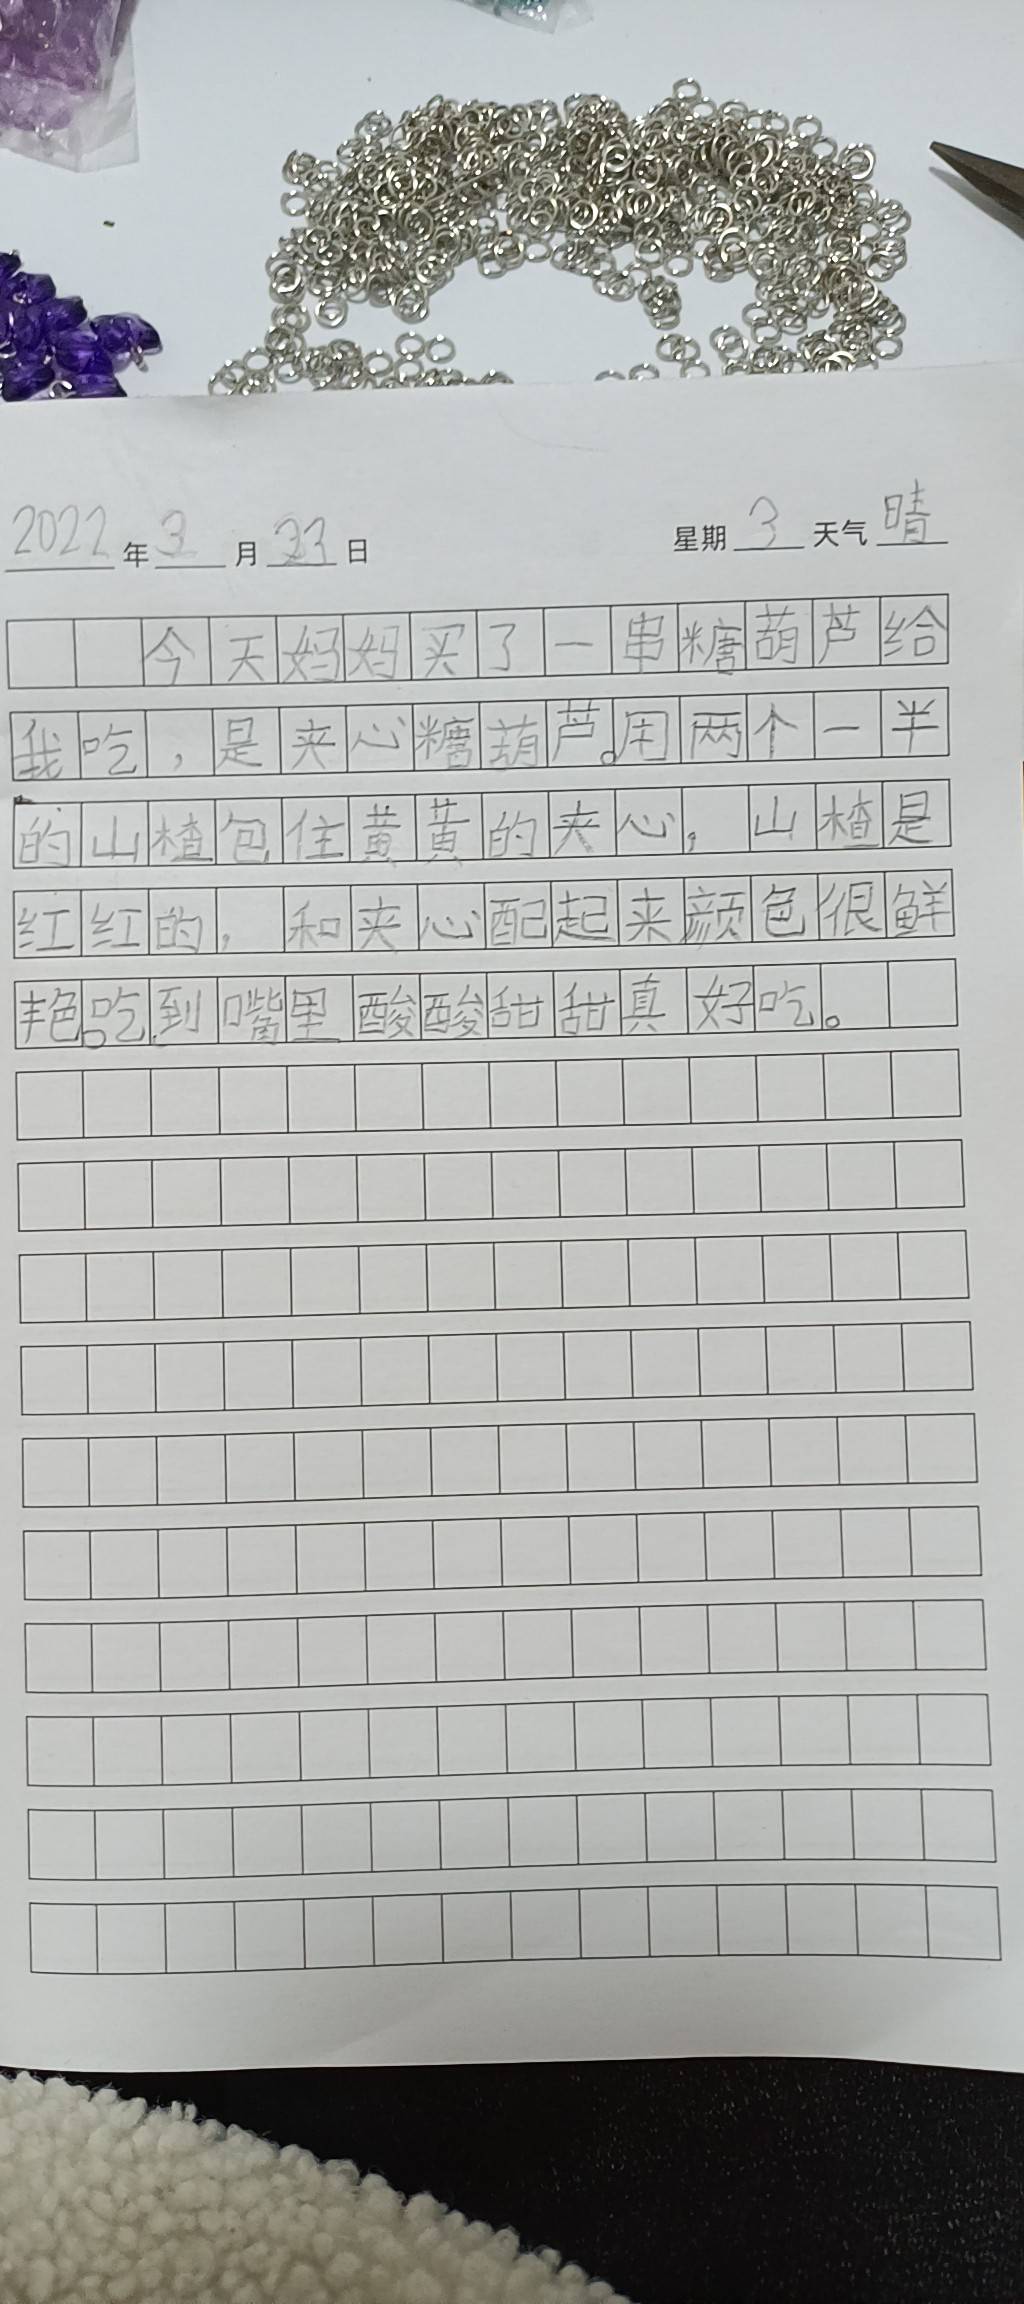 2022年3月23日 星期3 天气晴
今天妈妈买了一串糖葫芦给
我吃，是夹心糖葫芦。用两个一半
的山楂包住黄黄的夹心，山楂是
红红的，和夹心配起来颜色很鲜
艳。吃到嘴里酸酸甜甜真好吃。